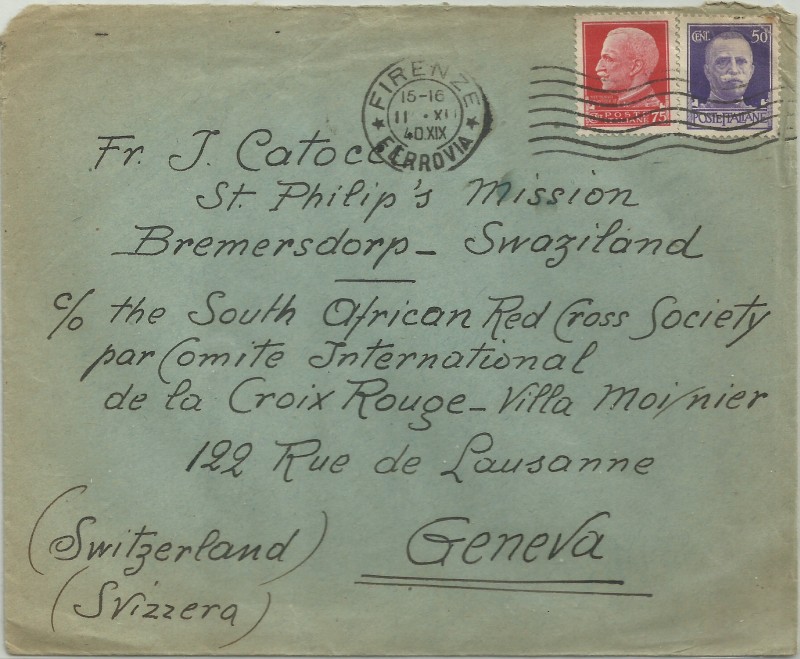 CENT. 50
POSTE ITALIANE 75
POSTE ITALIANE
FIRENZE
15-16
11 · XII
40.XIX
FERROVIA
Fr. J.
St. Philip's Mission
Bremersdorp - Swaziland
c/o the South African Red Cross Society
par Comite International
de la Croix Rouge - Villa Moinier
122 Rue de Lausanne
Geneva
(Switzerland)
(Svizzera)